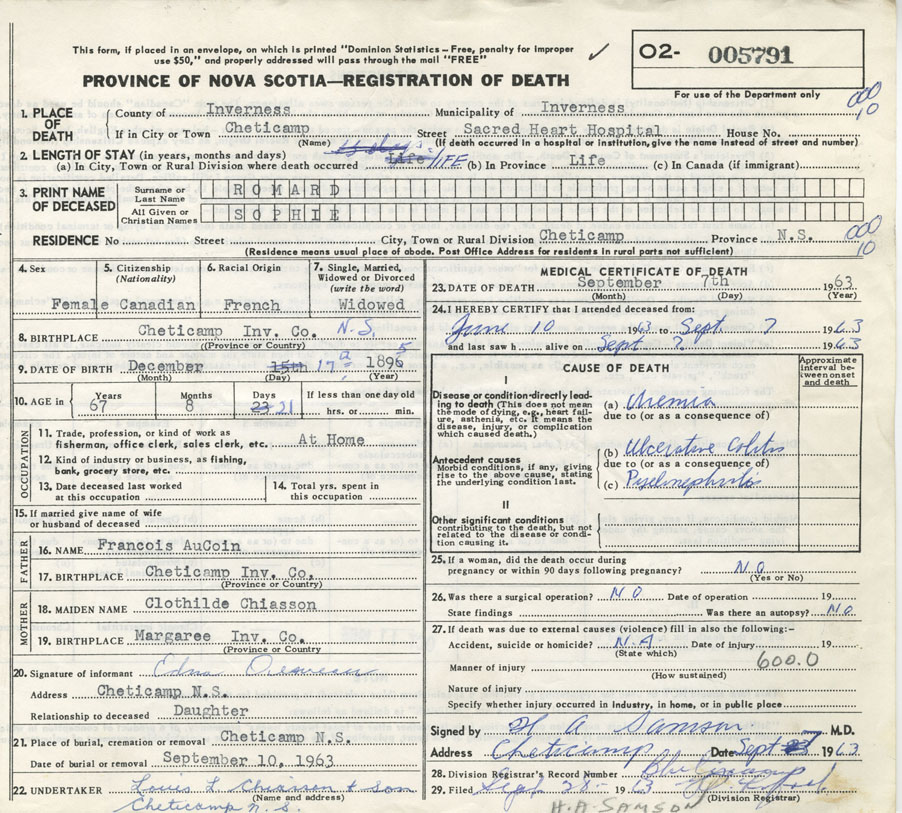 This form, if placed in an envelope, on which is printed "Dominion Statistics – Free, penalty for improper
use $50," and properly addressed will pass through the mail "FREE"
✓
O2- 005791
For use of the Department only
PROVINCE OF NOVA SCOTIA—REGISTRATION OF DEATH
000
10
1. PLACE OF DEATH
County of Inverness Municipality of Inverness
If in City or Town Cheticamp Street Sacred Heart Hospital House No.
(Name) (If death occurred in a hospital or institution, give the name instead of street and number)
2. LENGTH OF STAY (in years, months and days)
(a) In City, Town or Rural Division where death occurred Life LIFE (b) In Province Life (c) In Canada (if immigrant)
3. PRINT NAME OF DECEASED
Surname or Last Name ROMARD
All Given or Christian Names SOPHIE
000
10
RESIDENCE No Street City, Town or Rural Division Cheticamp Province N.S.
(Residence means usual place of abode. Post Office Address for residents in rural parts not sufficient)
4. Sex 5. Citizenship (Nationality) 6. Racial Origin 7. Single, Married, Widowed or Divorced (write the word)
Female Canadian French Widowed
8. BIRTHPLACE Cheticamp Inv. Co. N.S.
(Province or Country)
9. DATE OF BIRTH December 15th 17 1896 5
(Month) (Day) (Year)
10. AGE in Years 67 Months 8 Days 23 21 If less than one day old hrs. or min.
OCCUPATION
11. Trade, profession, or kind of work as
fisherman, office clerk, sales clerk, etc. At Home
12. Kind of industry or business, as fishing,
bank, grocery store, etc.
13. Date deceased last worked
at this occupation
14. Total yrs. spent in
this occupation
15. If married give name of wife
or husband of deceased
FATHER
16. NAME Francois AuCoin
17. BIRTHPLACE Cheticamp Inv. Co,
(Province or Country)
MOTHER
18. MAIDEN NAME Clothilde Chiasson
19. BIRTHPLACE Margaree Inv. Co.
(Province or Country)
20. Signature of informant Edna
Address Cheticamp N.S.
Relationship to deceased Daughter
21. Place of burial, cremation or removal Cheticamp N.S.
Date of burial or removal September 10, 1963
22. UNDERTAKER Louis L Chiasson & Son
(Name and address)
Cheticamp N.S.
MEDICAL CERTIFICATE OF DEATH
23. DATE OF DEATH September 7th 1963
(Month) (Day) (Year)
24. I HEREBY CERTIFY that I attended deceased from:
June 10 1963 to Sept. 7 1963
and last saw h alive on Sept 7 1963
CAUSE OF DEATH
Approximate interval between onset and death
I
Disease or condition directly leading to death (This does not
mean the mode of dying, e.g., heart failure, asthenia, etc. It means the
disease, injury, or complication
which caused death.)
(a) Uremia
due to (or as a consequence of)
Antecedent causes
Morbid conditions, if any, giving
rise to the above cause, stating
the underlying condition last.
(b) Ulcerative Colitis
due to (or as a consequence of)
(c) Pyelonephritis
II
Other significant conditions
contributing to the death, but not
related to the disease or condition causing it.
25. If a woman, did the death occur during
pregnancy or within 90 days following pregnancy? NO
(Yes or No)
26. Was there a surgical operation? NO Date of operation 19
State findings Was there an autopsy? NO
27. If death was due to external causes (violence) fill in also the following:–
Accident, suicide or homicide? N.A Date of injury 19
(State which)
Manner of injury 600.0
(How sustained)
Nature of injury
Specify whether injury occurred in Industry, in home, or in public place
Signed by H A Samson M.D.
Address Cheticamp Date Sept 1963
28. Division Registrar's Record Number
29. Filed Sept 28- 1963
(Division Registrar)
H.A. SAMSON